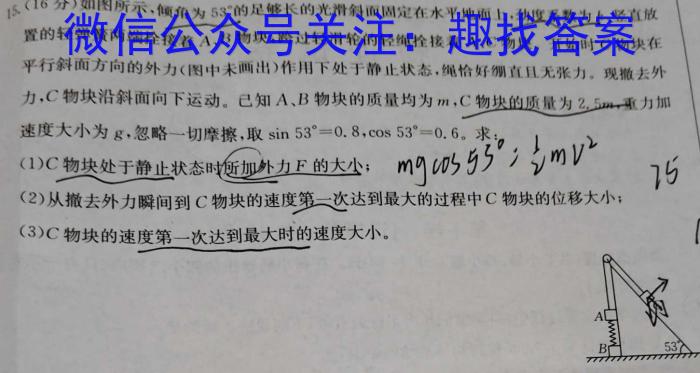 15.(16分)如图所示,倾角为53°的足够长的光滑斜面固定在水平地面上,劲度系数为k、竖直放
微信公众号关注:趣找答案
平行斜面方向的外力(图中未画出)作用下处于静止状态,绳恰好绷直且无张力。现撤去外
力,C物块沿斜面向下运动。已知A、B物块的质量均为m,C物块的质量为2.5m,重力加
速度大小为g,忽略一切摩擦,取 sin 53°=0.8,cos 53°=0.6。求:
(1)C物块处于静止状态时所加外力F的大小;
mgcos53°=½mv²
75
(2)从撤去外力瞬间到C物块的速度第一次达到最大的过程中C物块的位移大小;
(3)C物块的速度第一次达到最大时的速度大小。
A
B
53°